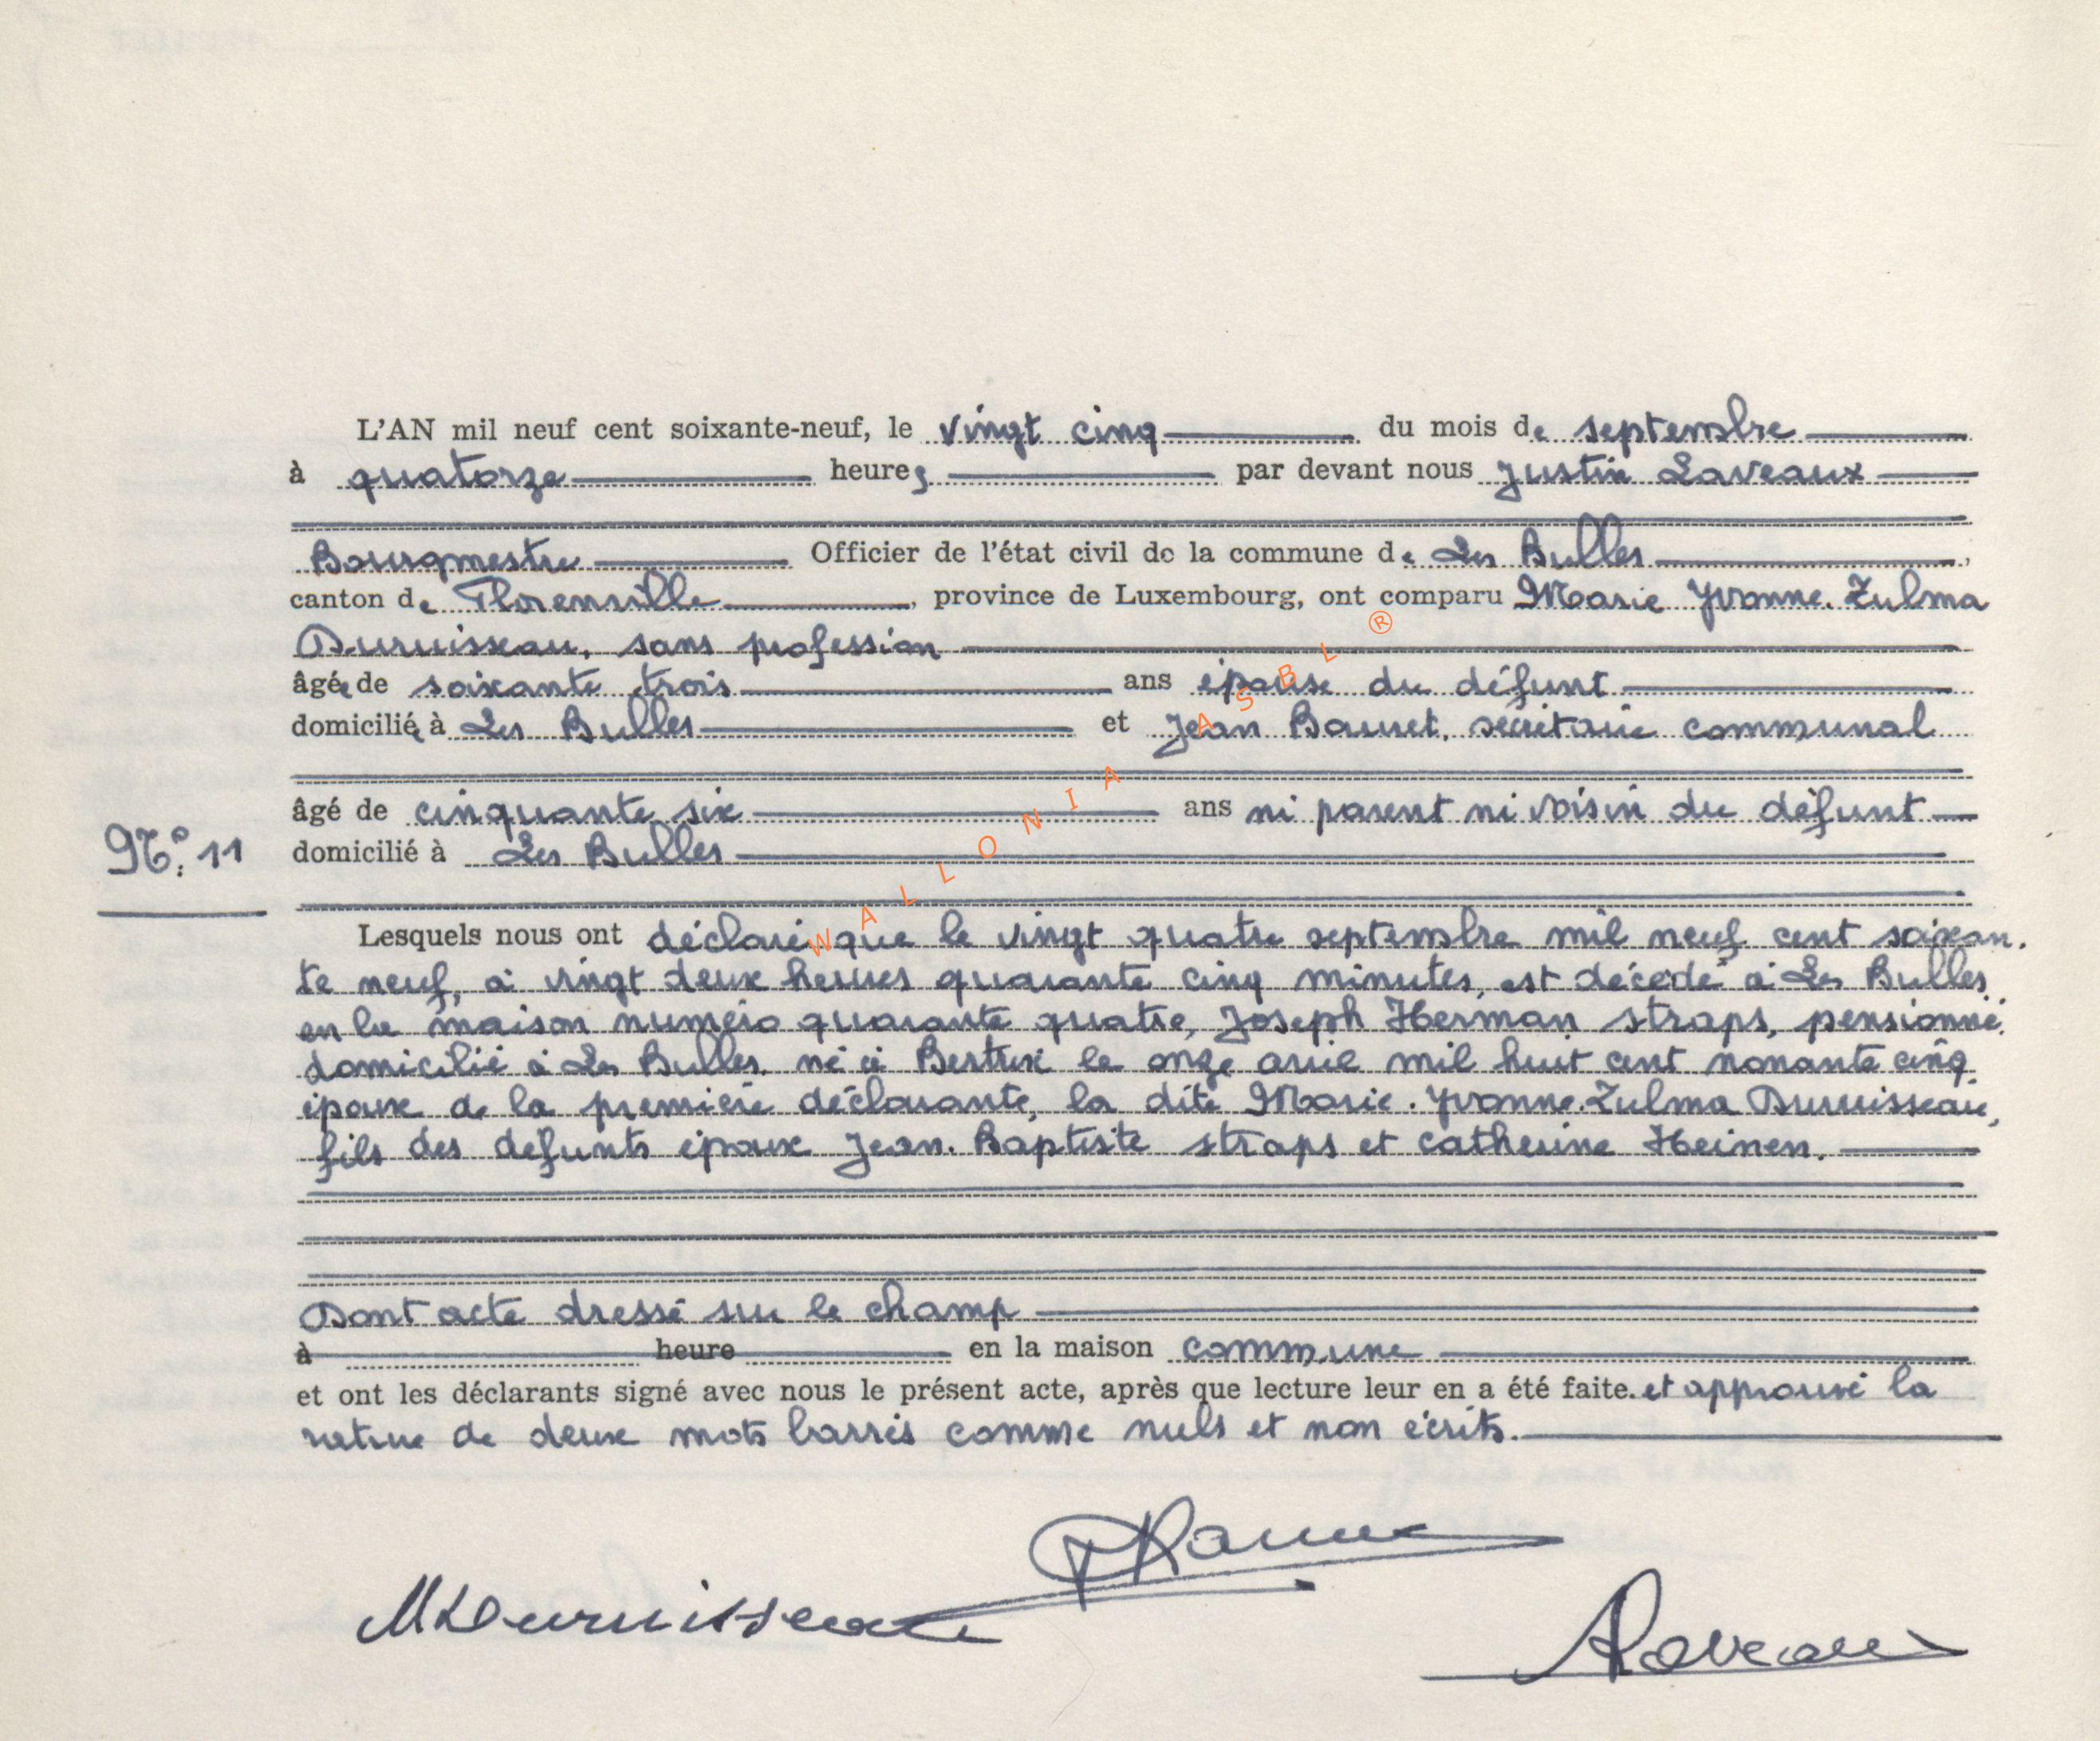 L'AN mil neuf cent soixante-neuf, le vingt cinq du mois de septembre
à quatorze heures par devant nous Justin Laveaux
Bourgmestre Officier de l'état civil de la commune de Les Bulles,
canton de Florenville, province de Luxembourg, ont comparu Marie Yvonne Zulma
Duruisseau, sans profession
âgée de soixante trois ans épouse du défunt
domiciliée à Les Bulles et Jean Bauret, secrétaire communal
âgé de cinquante six ans ni parent ni voisin du défunt
N° 11
domicilié à Les Bulles
Lesquels nous ont déclaré que le vingt quatre septembre mil neuf cent soixan.
te neuf, à vingt deux heures quarante cinq minutes, est décédé à Les Bulles
en la maison numéro quarante quatre, Joseph Herman Straps, pensionné,
domicilié à Les Bulles, né à Bertrix le onze avril mil huit cent nonante cinq
époux de la première déclarante, la dite Marie. Yvonne. Zulma Duruisseau,
fils des défunts époux Jean. Baptiste Straps et Catherine Heinen.
Dont acte dressé sur le champ
à heure en la maison commune
et ont les déclarants signé avec nous le présent acte, après que lecture leur en a été faite. et approuvé la
rature de deux mots barrés comme nuls et non écrits.
MDuruisseau
Laveaux
WALLONIA ASBL ®